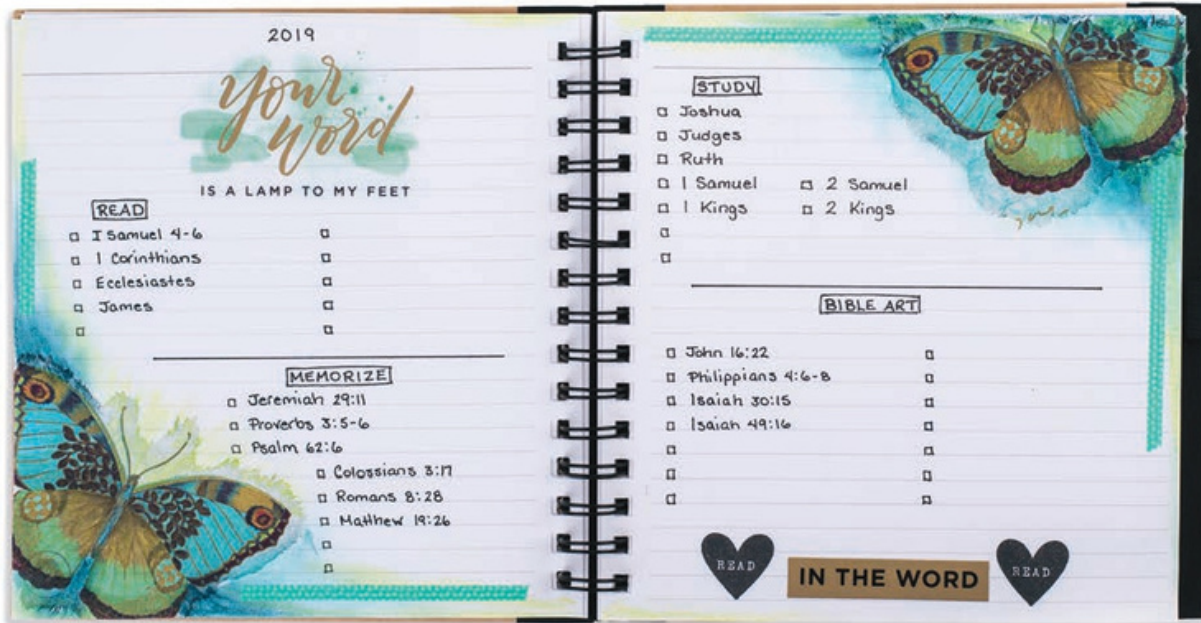 2019
your
word
IS A LAMP TO MY FEET
READ
I Samuel 4-6
1 Corinthians
Ecclesiastes
James
MEMORIZE
Jeremiah 29:11
Proverbs 3:5-6
Psalm 62:6
Colossians 3:17
Romans 8:28
Matthew 19:26
STUDY
Joshua
Judges
Ruth
1 Samuel 2 Samuel
1 Kings 2 Kings
BIBLE ART
John 16:22
Philippians 4:6-8
Isaiah 30:15
Isaiah 49:16
READ IN THE WORD READ